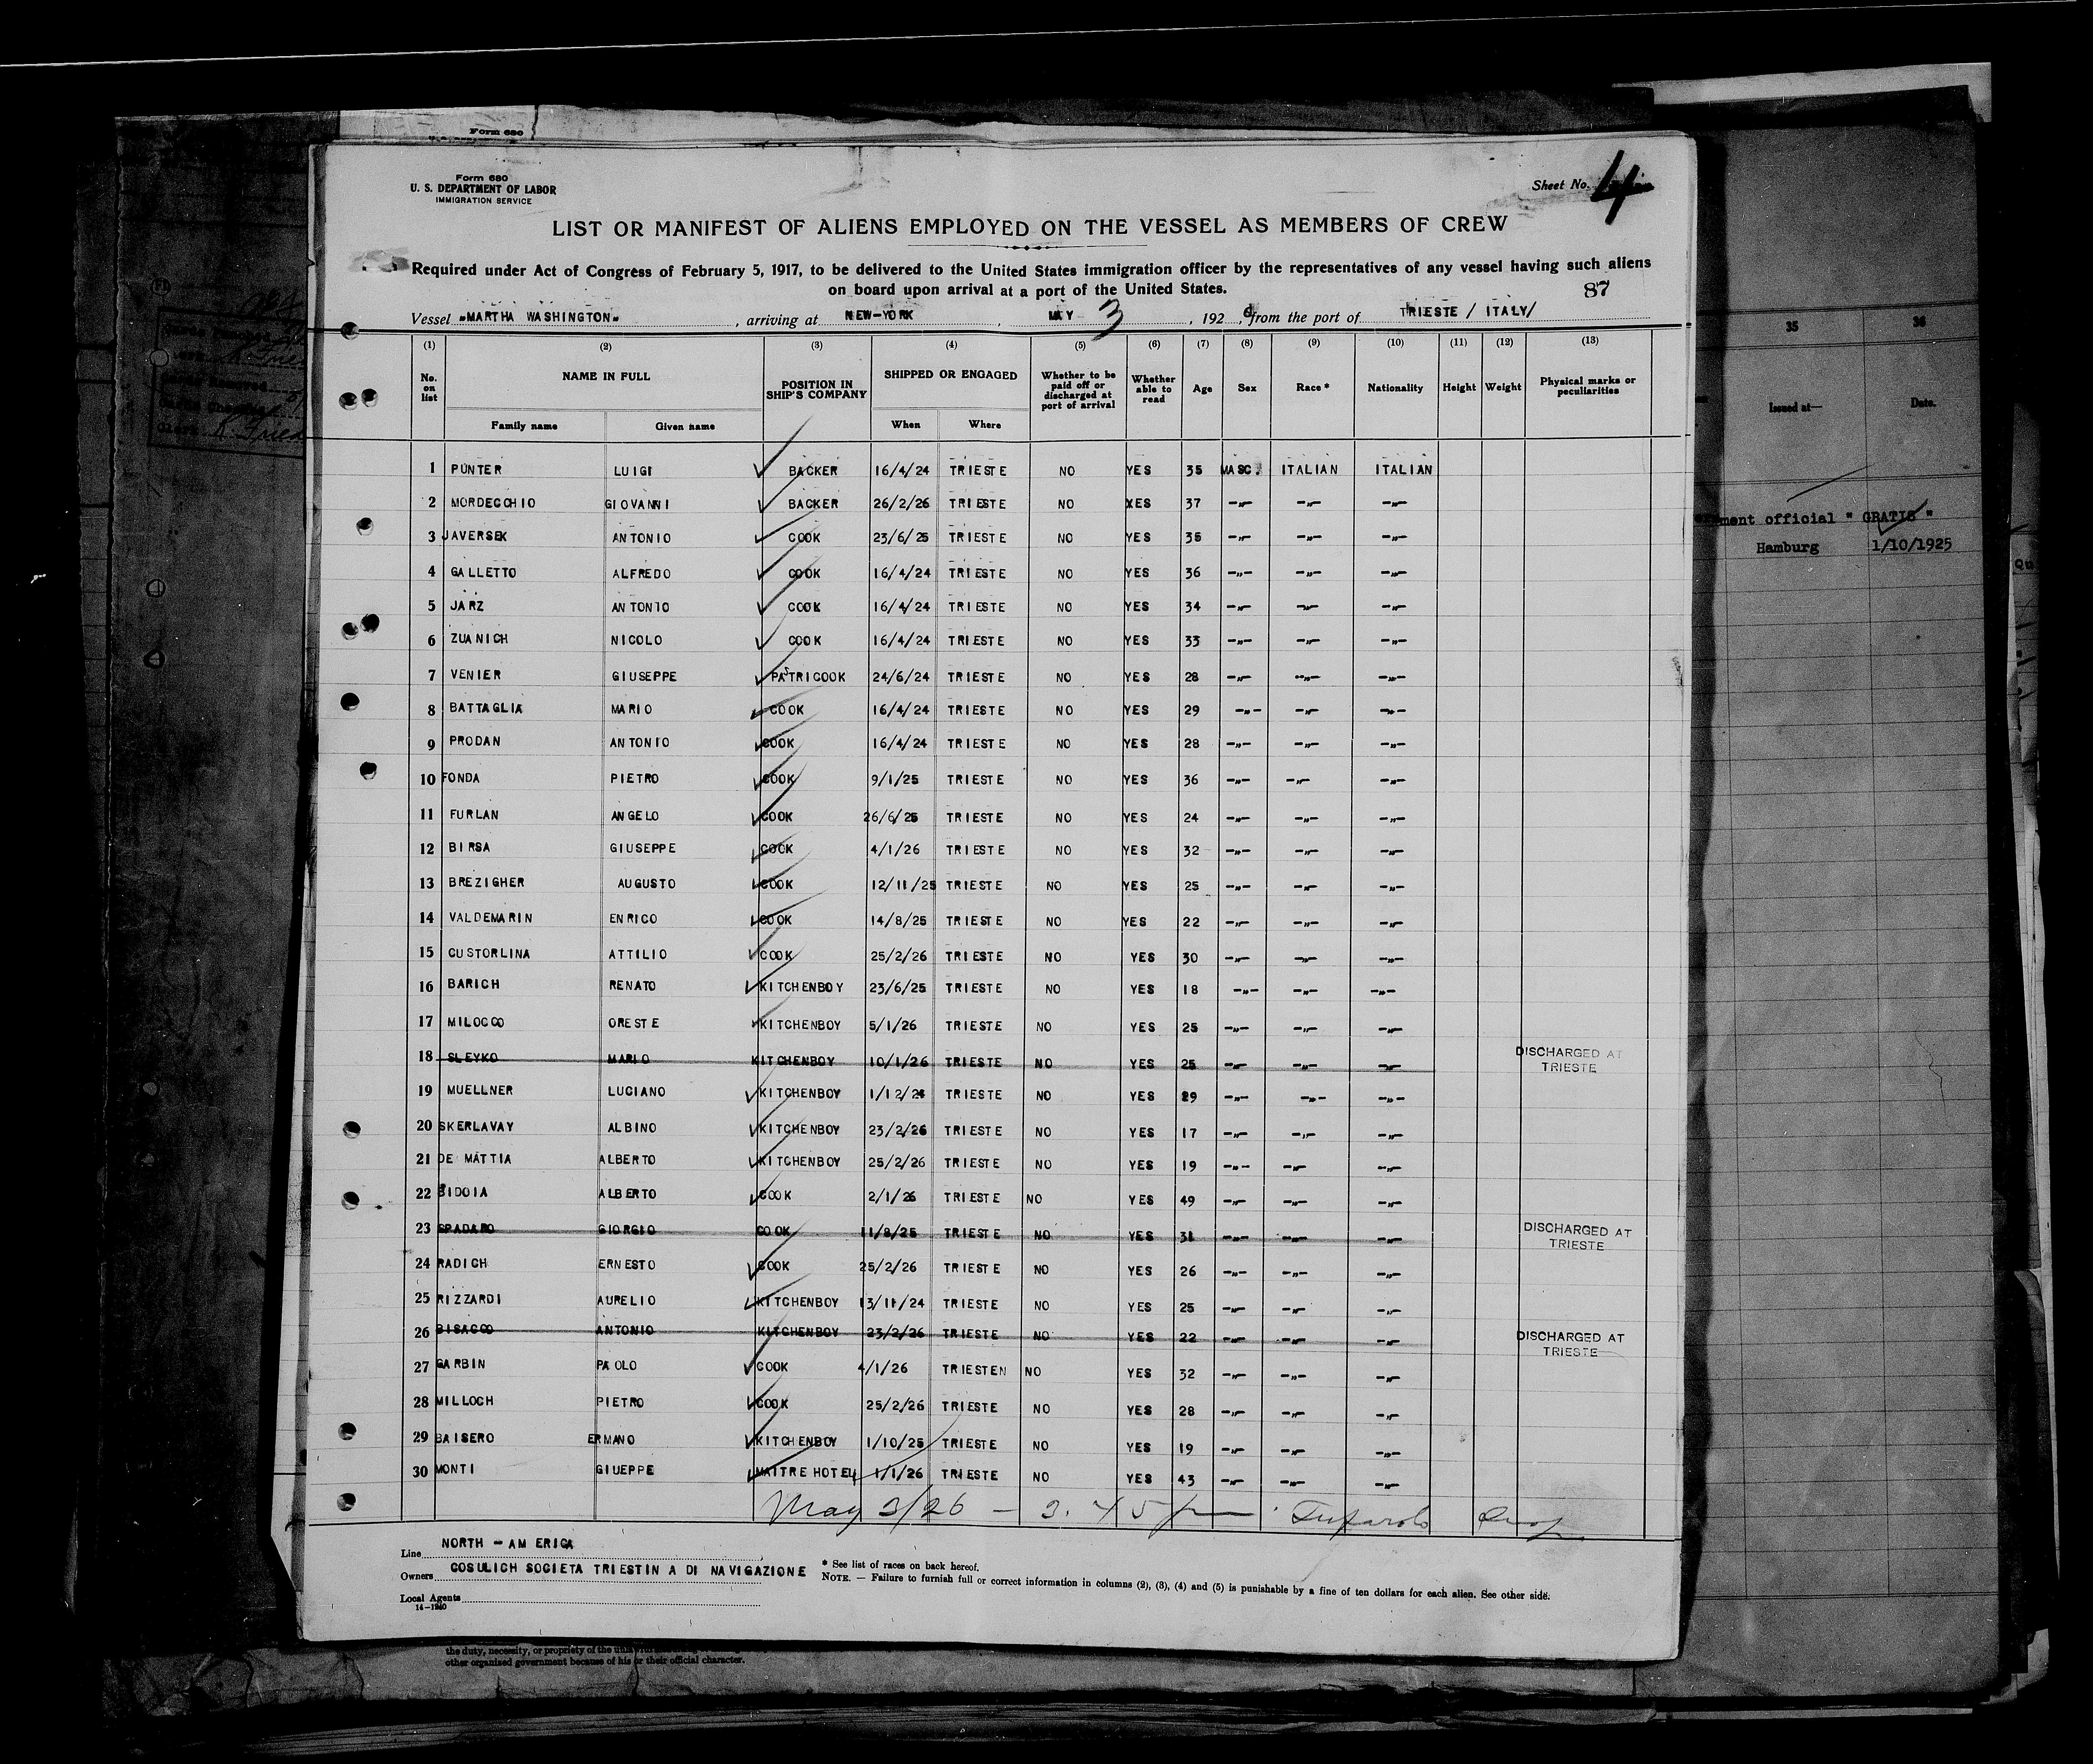 Form 680
Form 680
U. S. DEPARTMENT OF LABOR
IMMIGRATION SERVICE
Sheet No. 4
LIST OR MANIFEST OF ALIENS EMPLOYED ON THE VESSEL AS MEMBERS OF CREW
Required under Act of Congress of February 5, 1917, to be delivered to the United States immigration officer by the representatives of any vessel having such aliens
on board upon arrival at a port of the United States.
87
Vessel "MARTHA WASHINGTON", arriving at NEW-YORK, MAY 3, 1926, from the port of TRIESTE / ITALY/
(1) (2) (3) (4) (5) (6) (7) (8) (9) (10) (11) (12) (13)
No. on list NAME IN FULL POSITION IN SHIP'S COMPANY SHIPPED OR ENGAGED Whether to be paid off or discharged at port of arrival Whether able to read Age Sex Race * Nationality Height Weight Physical marks or peculiarities
Family name Given name When Where
1 PUNTER LUIGI BACKER 16/4/24 TRIESTE NO YES 35 MASC. ITALIAN ITALIAN
2 MORDEGCHIO GIOVANNI BACKER 26/2/26 TRIESTE NO YES 37 -"- -"- -"-
3 JAVERSEK ANTONIO COOK 23/6/25 TRIESTE NO YES 35 -"- -"- -"-
4 GALLETTO ALFREDO COOK 16/4/24 TRIESTE NO YES 36 -"- -"- -"-
5 JARZ ANTONIO COOK 16/4/24 TRIESTE NO YES 34 -"- -"- -"-
6 ZUANICH NICOLO COOK 16/4/24 TRIESTE NO YES 33 -"- -"- -"-
7 VENIER GIUSEPPE PASTRICOOK 24/6/24 TRIESTE NO YES 28 -"- -"- -"-
8 BATTAGLIA MARIO COOK 16/4/24 TRIESTE NO YES 29 -"- -"- -"-
9 PRODAN ANTONIO COOK 16/4/24 TRIESTE NO YES 28 -"- -"- -"-
10 FONDA PIETRO COOK 9/1/25 TRIESTE NO YES 36 -"- -"- -"-
11 FURLAN ANGELO COOK 26/6/25 TRIESTE NO YES 24 -"- -"- -"-
12 BIRSA GIUSEPPE COOK 4/1/26 TRIESTE NO YES 32 -"- -"- -"-
13 BREZIGHER AUGUSTO COOK 12/11/25 TRIESTE NO YES 25 -"- -"- -"-
14 VALDEMARIN ENRICO COOK 14/8/25 TRIESTE NO YES 22 -"- -"- -"-
15 CUSTORLINA ATTILIO COOK 25/2/26 TRIESTE NO YES 30 -"- -"- -"-
16 BARICH RENATO KITCHENBOY 23/6/25 TRIESTE NO YES 18 -"- -"- -"-
17 MILOCCO ORESTE KITCHENBOY 5/1/26 TRIESTE NO YES 25 -"- -"- -"-
18 SLEYKO MARIO KITCHENBOY 10/1/26 TRIESTE NO YES 25 -"- -"- -"- DISCHARGED AT TRIESTE
19 MUELLNER LUCIANO KITCHENBOY 1/12/24 TRIESTE NO YES 29 -"- -"- -"-
20 SKERLAVAY ALBINO KITCHENBOY 23/2/26 TRIESTE NO YES 17 -"- -"- -"-
21 DE MATTIA ALBERTO KITCHENBOY 25/2/26 TRIESTE NO YES 19 -"- -"- -"-
22 BIDOIA ALBERTO COOK 2/1/26 TRIESTE NO YES 49 -"- -"- -"-
23 SPADARO GIORGIO COOK 11/8/25 TRIESTE NO YES 31 -"- -"- -"- DISCHARGED AT TRIESTE
24 RADICH ERNESTO COOK 25/2/26 TRIESTE NO YES 26 -"- -"- -"-
25 RIZZARDI AURELIO KITCHENBOY 13/11/24 TRIESTE NO YES 25 -"- -"- -"-
26 BISACCO ANTONIO KITCHENBOY 23/2/26 TRIESTE NO YES 22 -"- -"- -"- DISCHARGED AT TRIESTE
27 GARBIN PAOLO COOK 4/1/26 TRIESTEN NO YES 32 -"- -"- -"-
28 MILLOCH PIETRO COOK 25/2/26 TRIESTE NO YES 28 -"- -"- -"-
29 BAISERO ERMANO KITCHENBOY 1/10/25 TRIESTE NO YES 19 -"- -"- -"-
30 MONTI GIUEPPE MAITRE HOTEL 1/1/26 TRIESTE NO YES 43 -"- -"- -"-
May 3/26 - 3.45 pm
Line NORTH - AMERICA
Owners COSULICH SOCIETA TRIESTINA DI NAVIGAZIONE
Local Agents
14-1240
* See list of races on back hereof.
NOTE. — Failure to furnish full or correct information in columns (2), (3), (4) and (5) is punishable by a fine of ten dollars for each alien. See other side.
the duty, necessity, or propriety of the
other organized government because of his or their official character.
35 36
Issued at— Date.
ment official " GRATIS "
Hamburg 1/10/1925
Qu